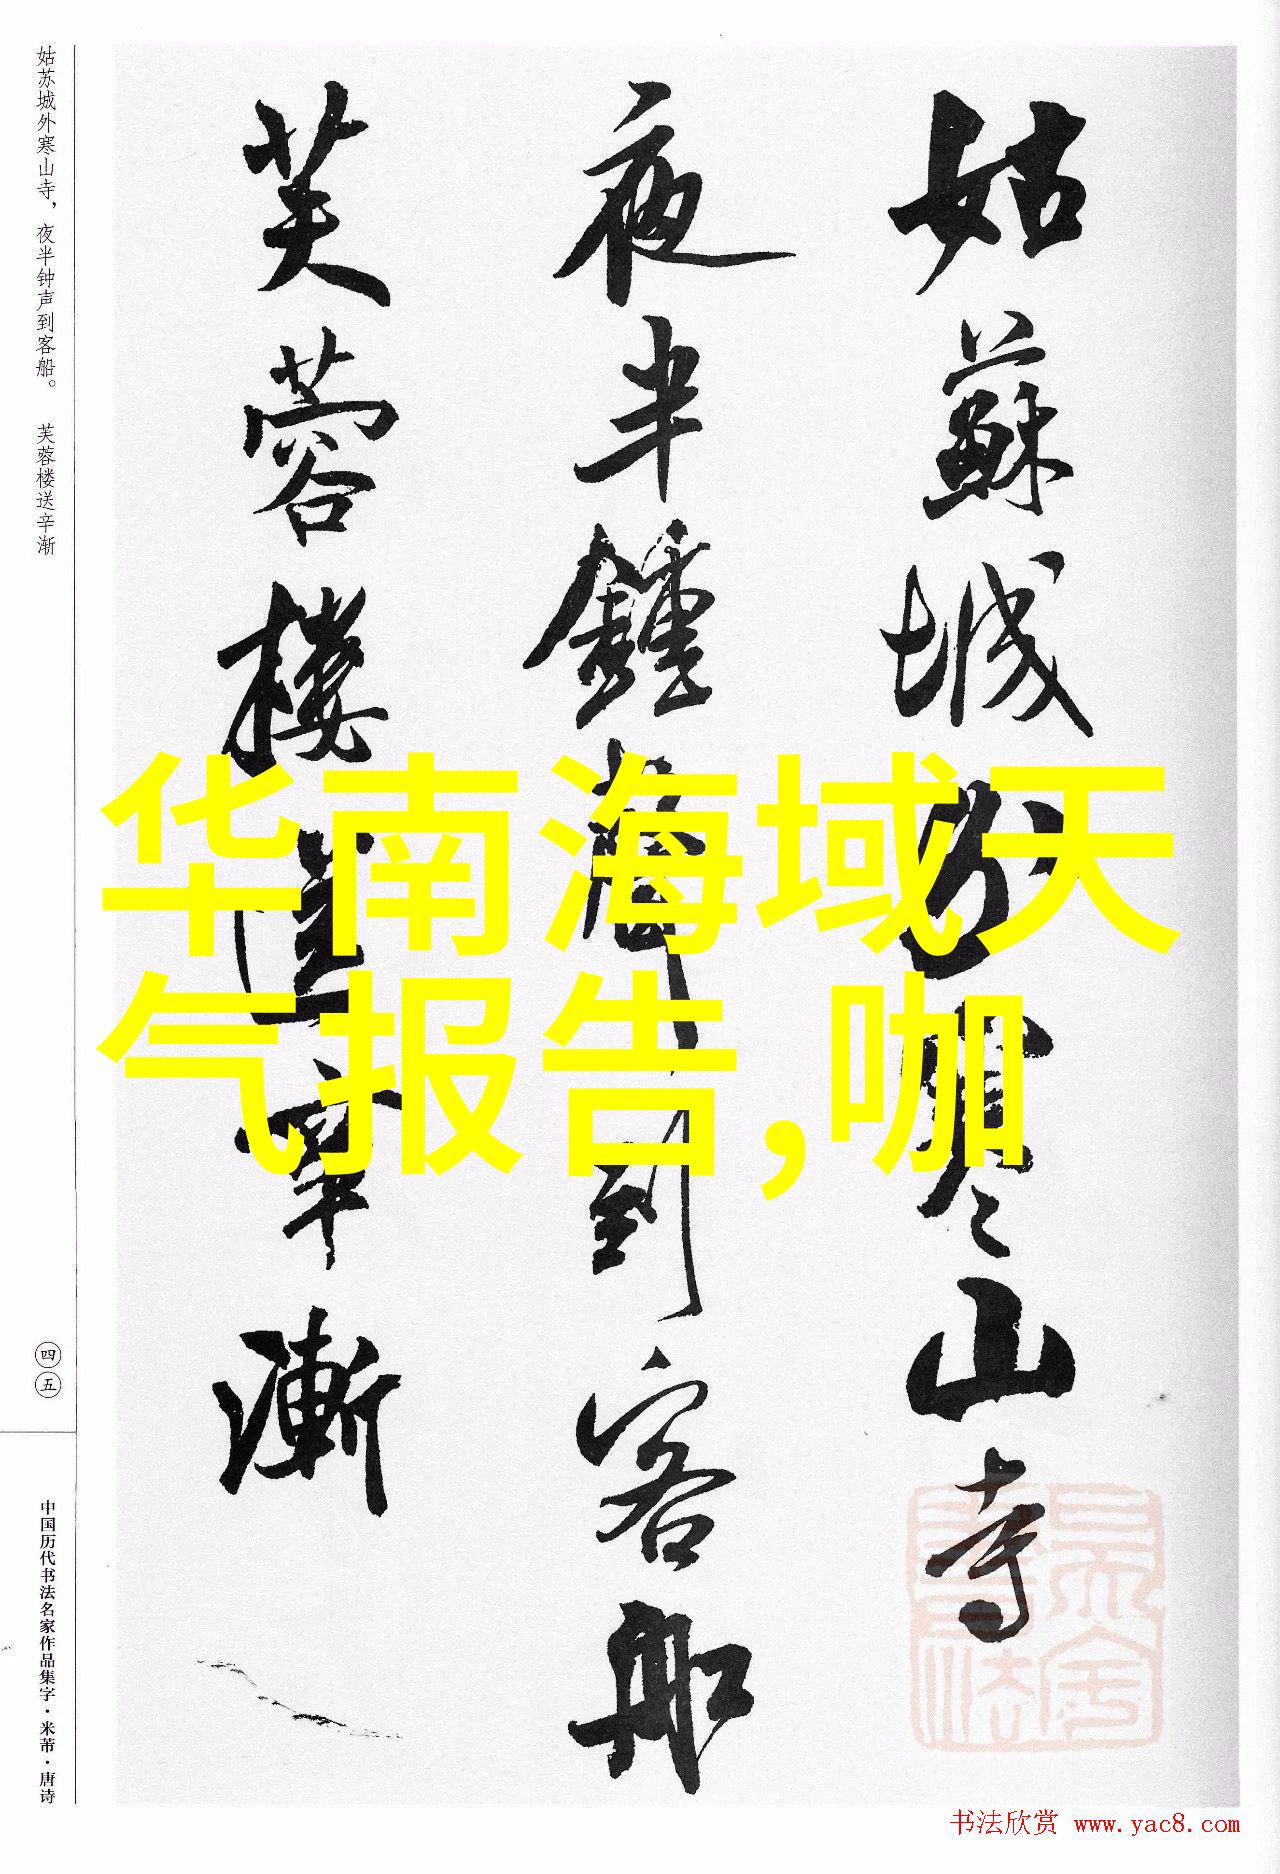 姑苏城外寒山寺，夜半钟声到客船。 芙蓉楼送辛渐
姑蘇城外寒山寺
夜半鍾聲到客船
芙蓉樓送辛漸
华南海域天
气报告,咖
四五
中国历代书法名家作品集字·米芾·唐诗
书法欣赏 www.yac8.com